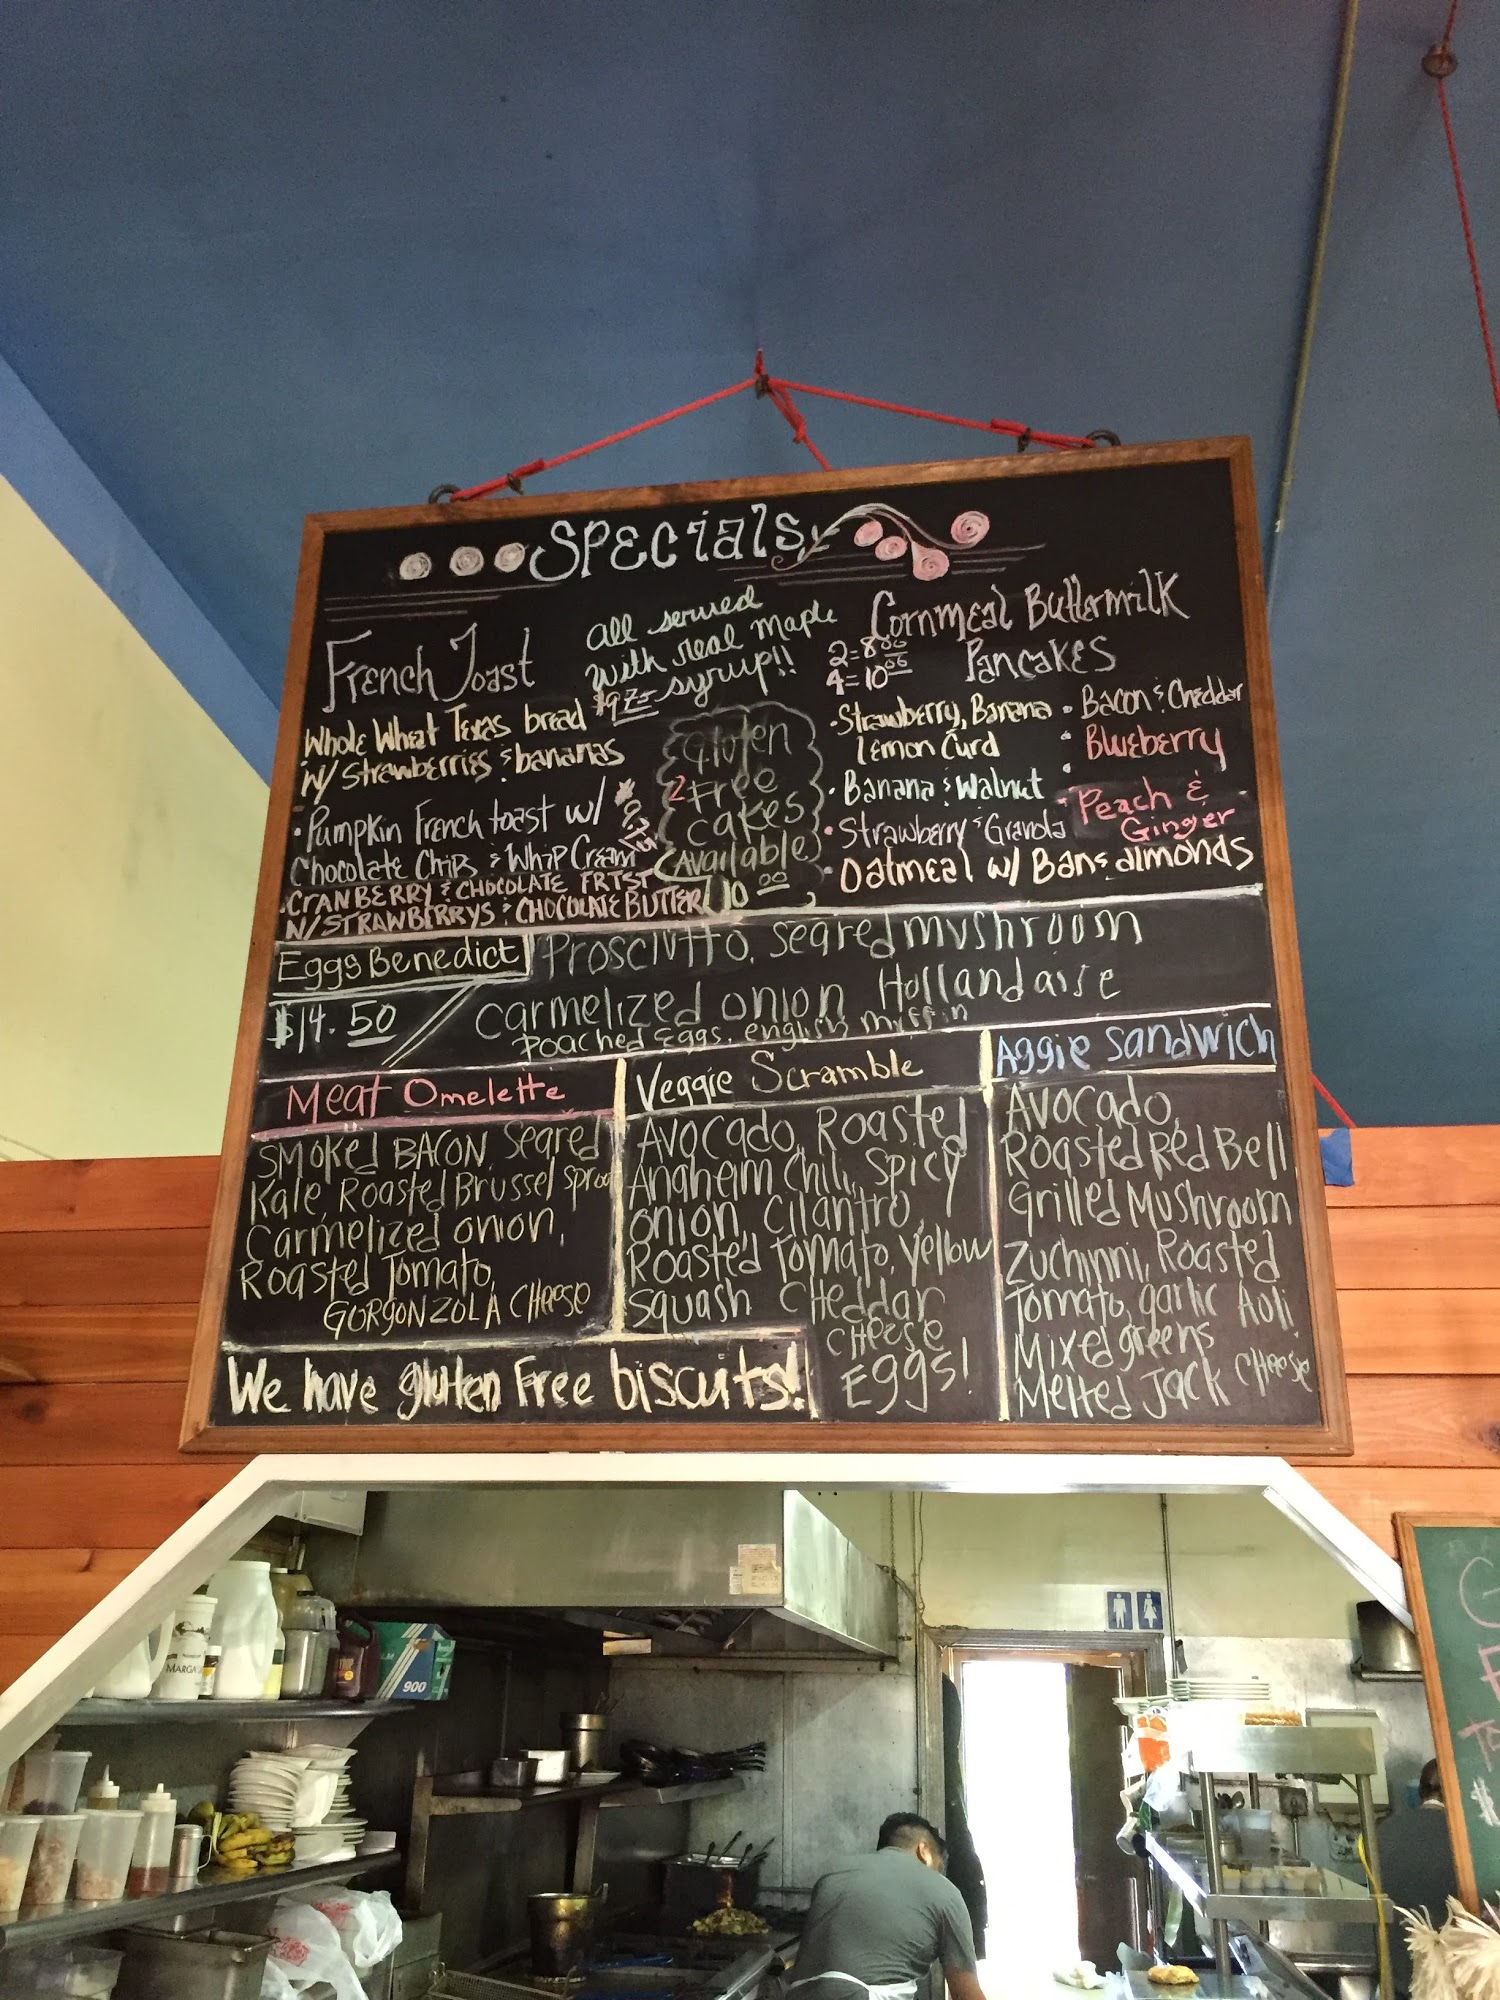 Specials
French Toast
All served
with real maple
syrup!!
Whole Wheat Texas bread $9.75
w/ Strawberries & bananas
• Pumpkin French toast w/
Chocolate Chips & Whip Cream
• CRANBERRY & CHOCOLATE FRTST
W/ STRAWBERRYS & CHOCOLATE BUTTER
Gluten
2 Free
Cakes
Available
10.00
Cornmeal Buttermilk
Pancakes
2=8.00
4=10.00
• Strawberry, Banana
Lemon Curd
• Banana & Walnut
• Strawberry & Granola
• Oatmeal w/ Ban & almonds
• Bacon & Cheddar
• Blueberry
• Peach &
Ginger
Eggs Benedict
$14.50
Prosciutto, seared mushroom
Carmelized onion Hollandaise
Poached Eggs, english muffin
Meat Omelette
Smoked BACON, Seared
Kale, Roasted Brussel sprout
Carmelized onion,
Roasted Tomato,
GORGONZOLA CHeese
Veggie Scramble
Avocado, Roasted
Anaheim Chili, Spicy
onion, Cilantro,
Roasted Tomato, Yellow
Squash Cheddar
Cheese
Eggs!
Aggie Sandwich
Avocado,
Roasted Red Bell
Grilled Mushroom
Zuchinni, Roasted
Tomato, garlic Aoli
Mixed greens
Melted Jack Cheese
We have gluten Free biscuits!
MARGA
900